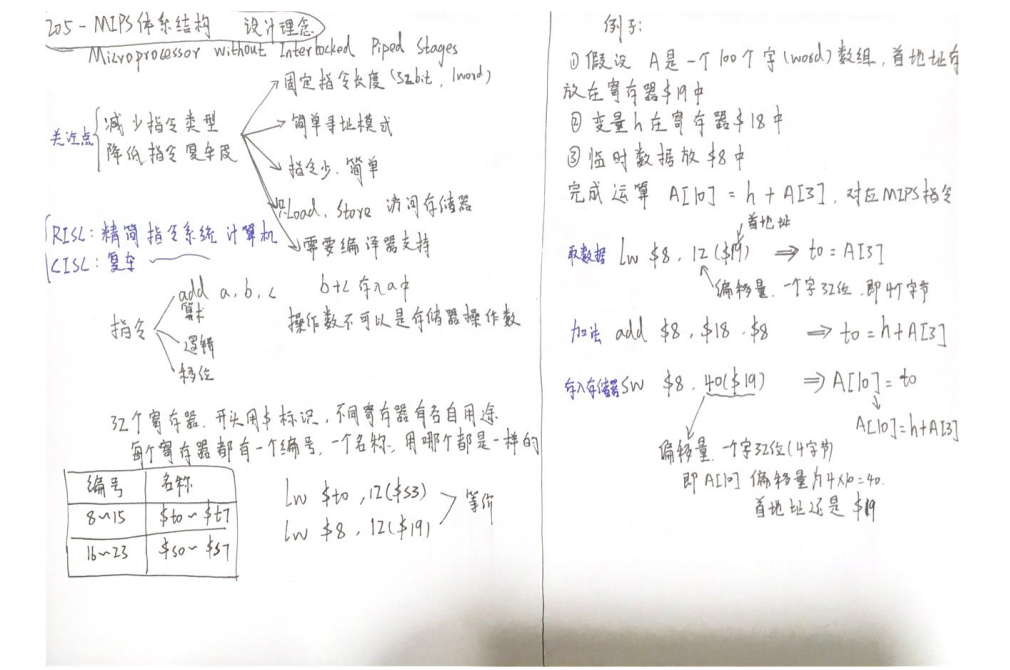 205-MIPS体系结构 设计理念
Microprocessor without Interlocked Piped Stages
固定指令长度(32bit, 1word)
关注点
减少指令类型
降低指令复杂度
简单寻址模式
指令少、简单
只Load, Store 访问存储器
需要编译器支持
RISC: 精简指令系统计算机
CISC: 复杂
指令
add a, b, c b+c 存入a中
算术
操作数不可以是存储器操作数
逻辑
移位
32个寄存器, 开头用$标识, 不同寄存器有各自用途
每个寄存器都有一个编号, 一个名称, 用哪个都是一样的
编号 名称
8~15 $t0~$t7
16~23 $s0~$s7
lw $t0, 12($s3)
lw $8, 12($19)
等价
例子:
①假设 A是一个100个字(word)数组, 首地址存
放在寄存器$19中
②变量h在寄存器$18中
③临时数据放$8中
完成运算 A[10] = h + A[3], 对应MIPS指令
首地址
取数据 lw $8, 12($19) ⇒ t0 = A[3]
偏移量, 一个字32位, 即4个字节
加法 add $8, $18, $8 ⇒ t0 = h+A[3]
存入存储器 sw $8, 40($19) ⇒ A[10] = t0
A[10]=h+A[3]
偏移量, 一个字32位(4字节)
即A[10] 偏移量为4×10=40.
首地址还是 $19